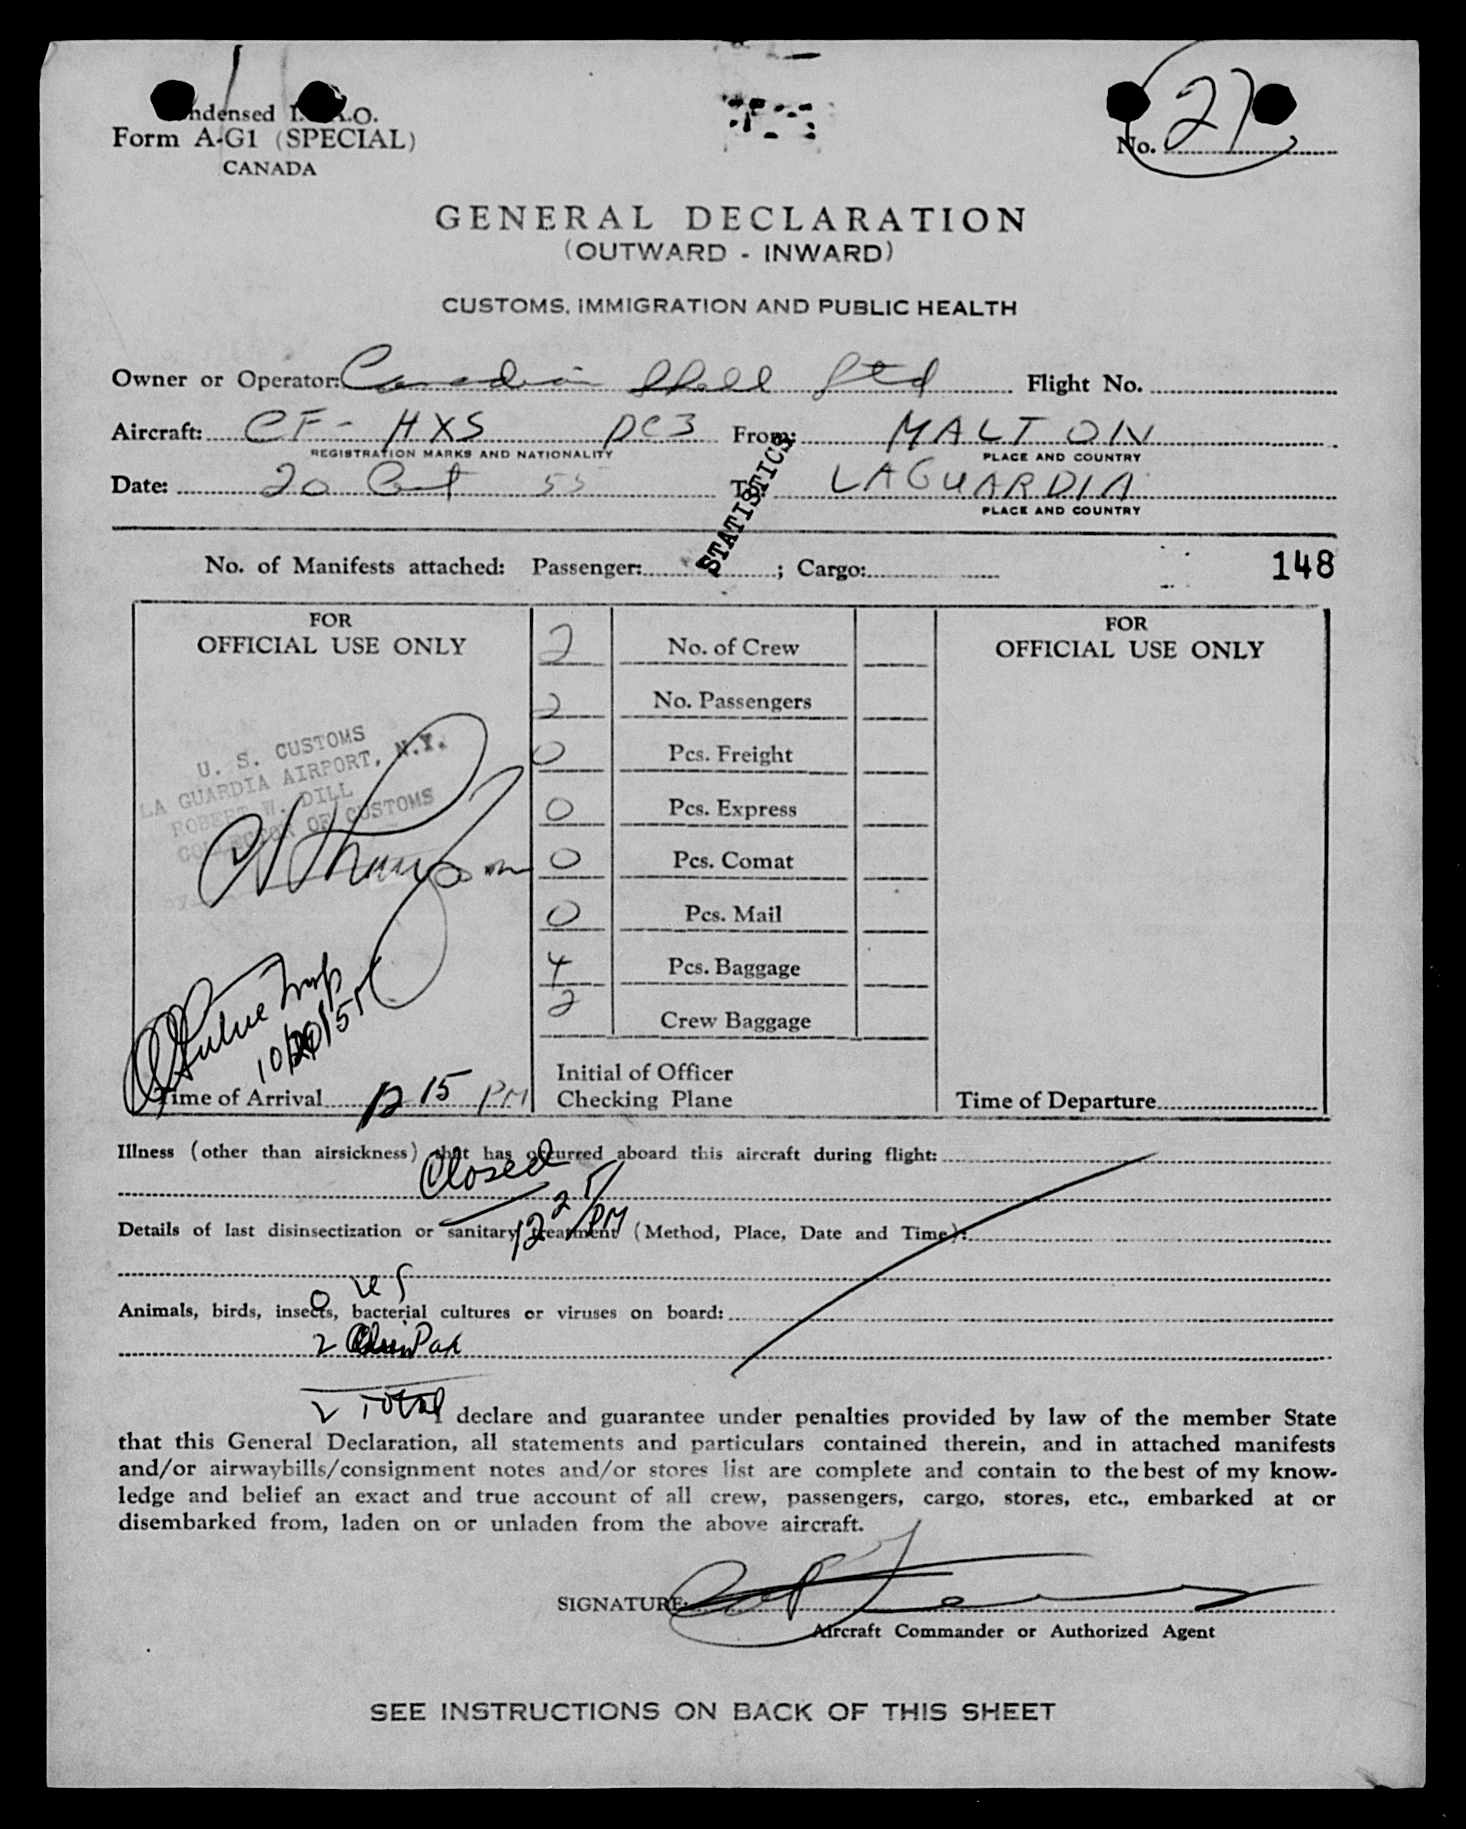 ndensed I. A.O.
Form A-G1 (SPECIAL)
CANADA
No. 27
GENERAL DECLARATION
(OUTWARD - INWARD)
CUSTOMS, IMMIGRATION AND PUBLIC HEALTH
Owner or Operator: Canadian Shell Ltd Flight No.
Aircraft: CF-HXS DC3 From: MALTON
REGISTRATION MARKS AND NATIONALITY PLACE AND COUNTRY
Date: 20 Oct 55 To LAGUARDIA
PLACE AND COUNTRY
STATISTICS
No. of Manifests attached: Passenger: ; Cargo: 148
FOR
OFFICIAL USE ONLY
U. S. CUSTOMS
LA GUARDIA AIRPORT, N.Y.
ROBERT W. DILL
COLLECTOR OF CUSTOMS
By
10/20/55
Time of Arrival 12 15 PM
2 No. of Crew
2 No. Passengers
0 Pcs. Freight
0 Pcs. Express
0 Pcs. Comat
0 Pcs. Mail
4 Pcs. Baggage
2 Crew Baggage
Initial of Officer
Checking Plane
FOR
OFFICIAL USE ONLY
Time of Departure
Illness (other than airsickness) that has occurred aboard this aircraft during flight:
Closed
12 25 PM
Details of last disinsectization or sanitary treatment (Method, Place, Date and Time):
0 US
Animals, birds, insects, bacterial cultures or viruses on board:
2
2 Total
I declare and guarantee under penalties provided by law of the member State
that this General Declaration, all statements and particulars contained therein, and in attached manifests
and/or airwaybills/consignment notes and/or stores list are complete and contain to the best of my know-
ledge and belief an exact and true account of all crew, passengers, cargo, stores, etc., embarked at or
disembarked from, laden on or unladen from the above aircraft.
SIGNATURE:
Aircraft Commander or Authorized Agent
SEE INSTRUCTIONS ON BACK OF THIS SHEET